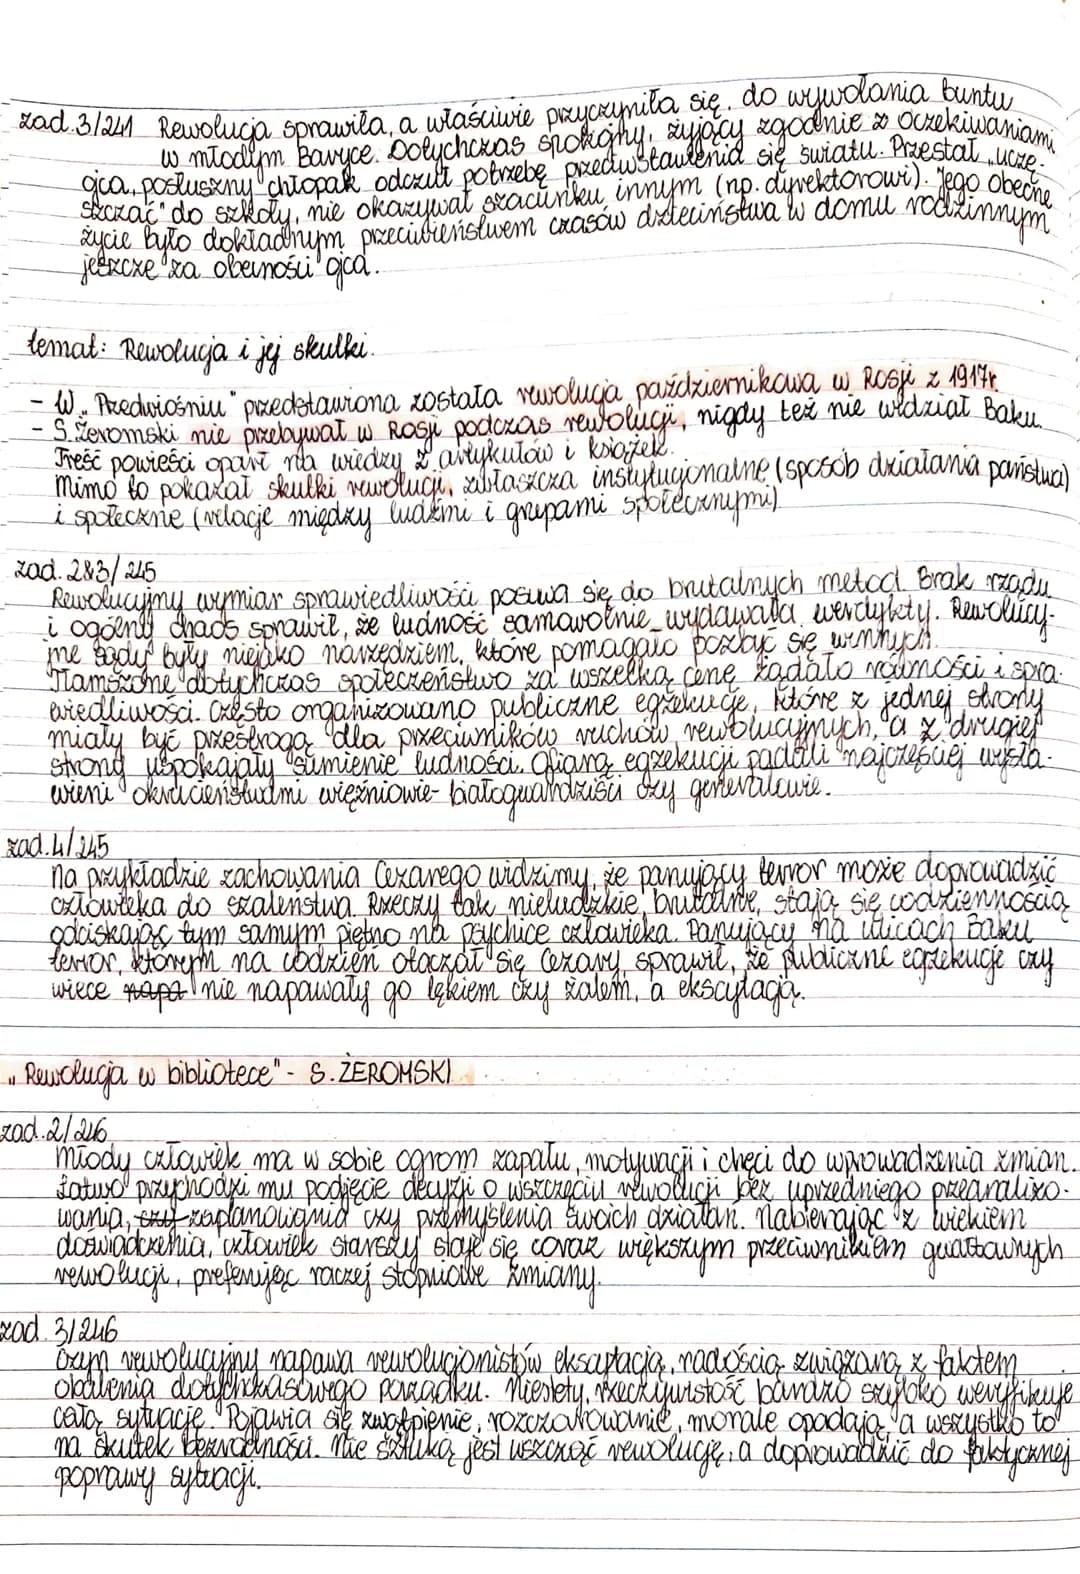 zad.3/241 Rewolucja sprawiła, a właściwie przyczyniła się, do wywołania buntu
w młodym Baryce. Dotychczas spokojny, żyjący zgodnie z oczekiwaniami
ojca, posłuszny chłopak odczuł potrzebę przeciwstawienia się światu. Przestał „uczę-
szczać" do szkoły, nie okazywał szacunku innym (np. dyrektorowi). Jego obecne
życie było dokładnym przeciwieństwem czasów dzieciństwa w domu rodzinnym
jeszcze za obecności ojca.
temat: Rewolucja i jej skutki.
- W „Przedwiośniu" przedstawiona została rewolucja październikowa w Rosji z 1917r.
- S. Żeromski nie przebywał w Rosji podczas rewolucji, nigdy też nie widział Baku.
Treść powieści oparł na wiedzy z artykułów i książek.
Mimo to pokazał skutki rewolucji, zwłaszcza instytucjonalne (sposób działania państwa)
i społeczne (relacje między ludźmi i grupami społecznymi)
zad. 2&3/245
Rewolucyjny wymiar sprawiedliwości posuwa się do brutalnych metod. Brak rządu
i ogólny chaos sprawił, że ludność samowolnie wydawała werdykty. Rewolucyj-
ne sądy były niejako narzędziem, które pomagało pozbyć się winnych.
Tłamszone dotychczas społeczeństwo za wszelką cenę żądało równości i spra-
wiedliwości. Często organizowano publiczne egzekucje, które z jednej strony
miały być przestrogą dla przeciwników ruchów rewolucyjnych, a z drugiej
strony uspokajały sumienie ludności. Ofiarą egzekucji padali najczęściej wysła-
wieni okrucieństwami więźniowie- białogwardziści czy generałowie.
zad.4/245
Na przykładzie zachowania Cezarego widzimy, że panujący terror może doprowadzić
człowieka do szaleństwa. Rzeczy tak nieludzkie, brutalne, stają się codziennością
odciskając tym samym piętno na psychice człowieka. Panujący na ulicach Baku
terror, którym na codzień otaczał się Cezary, sprawił, że publiczne egzekucje czy
wiece napa nie napawały go lękiem czy żalem, a ekscytacją.
„Rewolucja w bibliotece" - S. ŻEROMSKI
zad.2/246
Młody człowiek ma w sobie ogrom zapału, motywacji i chęci do wprowadzenia zmian.
Łatwo przychodzi mu podjęcie decyzji o wszczęciu rewolucji bez uprzedniego przeanalizo-
wania, czy zaplanowania czy przemyślenia swoich działań. Nabierając z wiekiem
doświadczenia, człowiek starszy staje się coraz większym przeciwnikiem gwałtownych
rewolucji, preferując raczej stopniowe zmiany.
zad. 3/246
Czyn rewolucyjny napawa rewolucjonistów ekscytacją, radością związaną z faktem
obalenia dotychczasowego porządku. Niestety, rzeczywistość bardzo szybko weryfikuje
całą sytuację. Pojawia się zwątpienie, rozczarowanie, morale opadają, a wszystko to
na skutek bezradności. Nie sztuką jest wszcząć rewolucję, a doprowadzić do faktycznej
poprawy sytuacji.